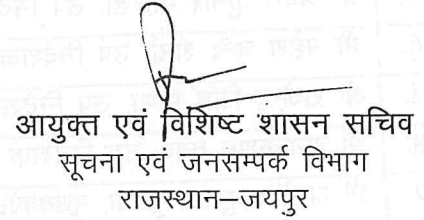 आयुक्त एवं विशिष्ट शासन सचिव
सूचना एवं जनसम्पर्क विभाग
राजस्थान–जयपुर